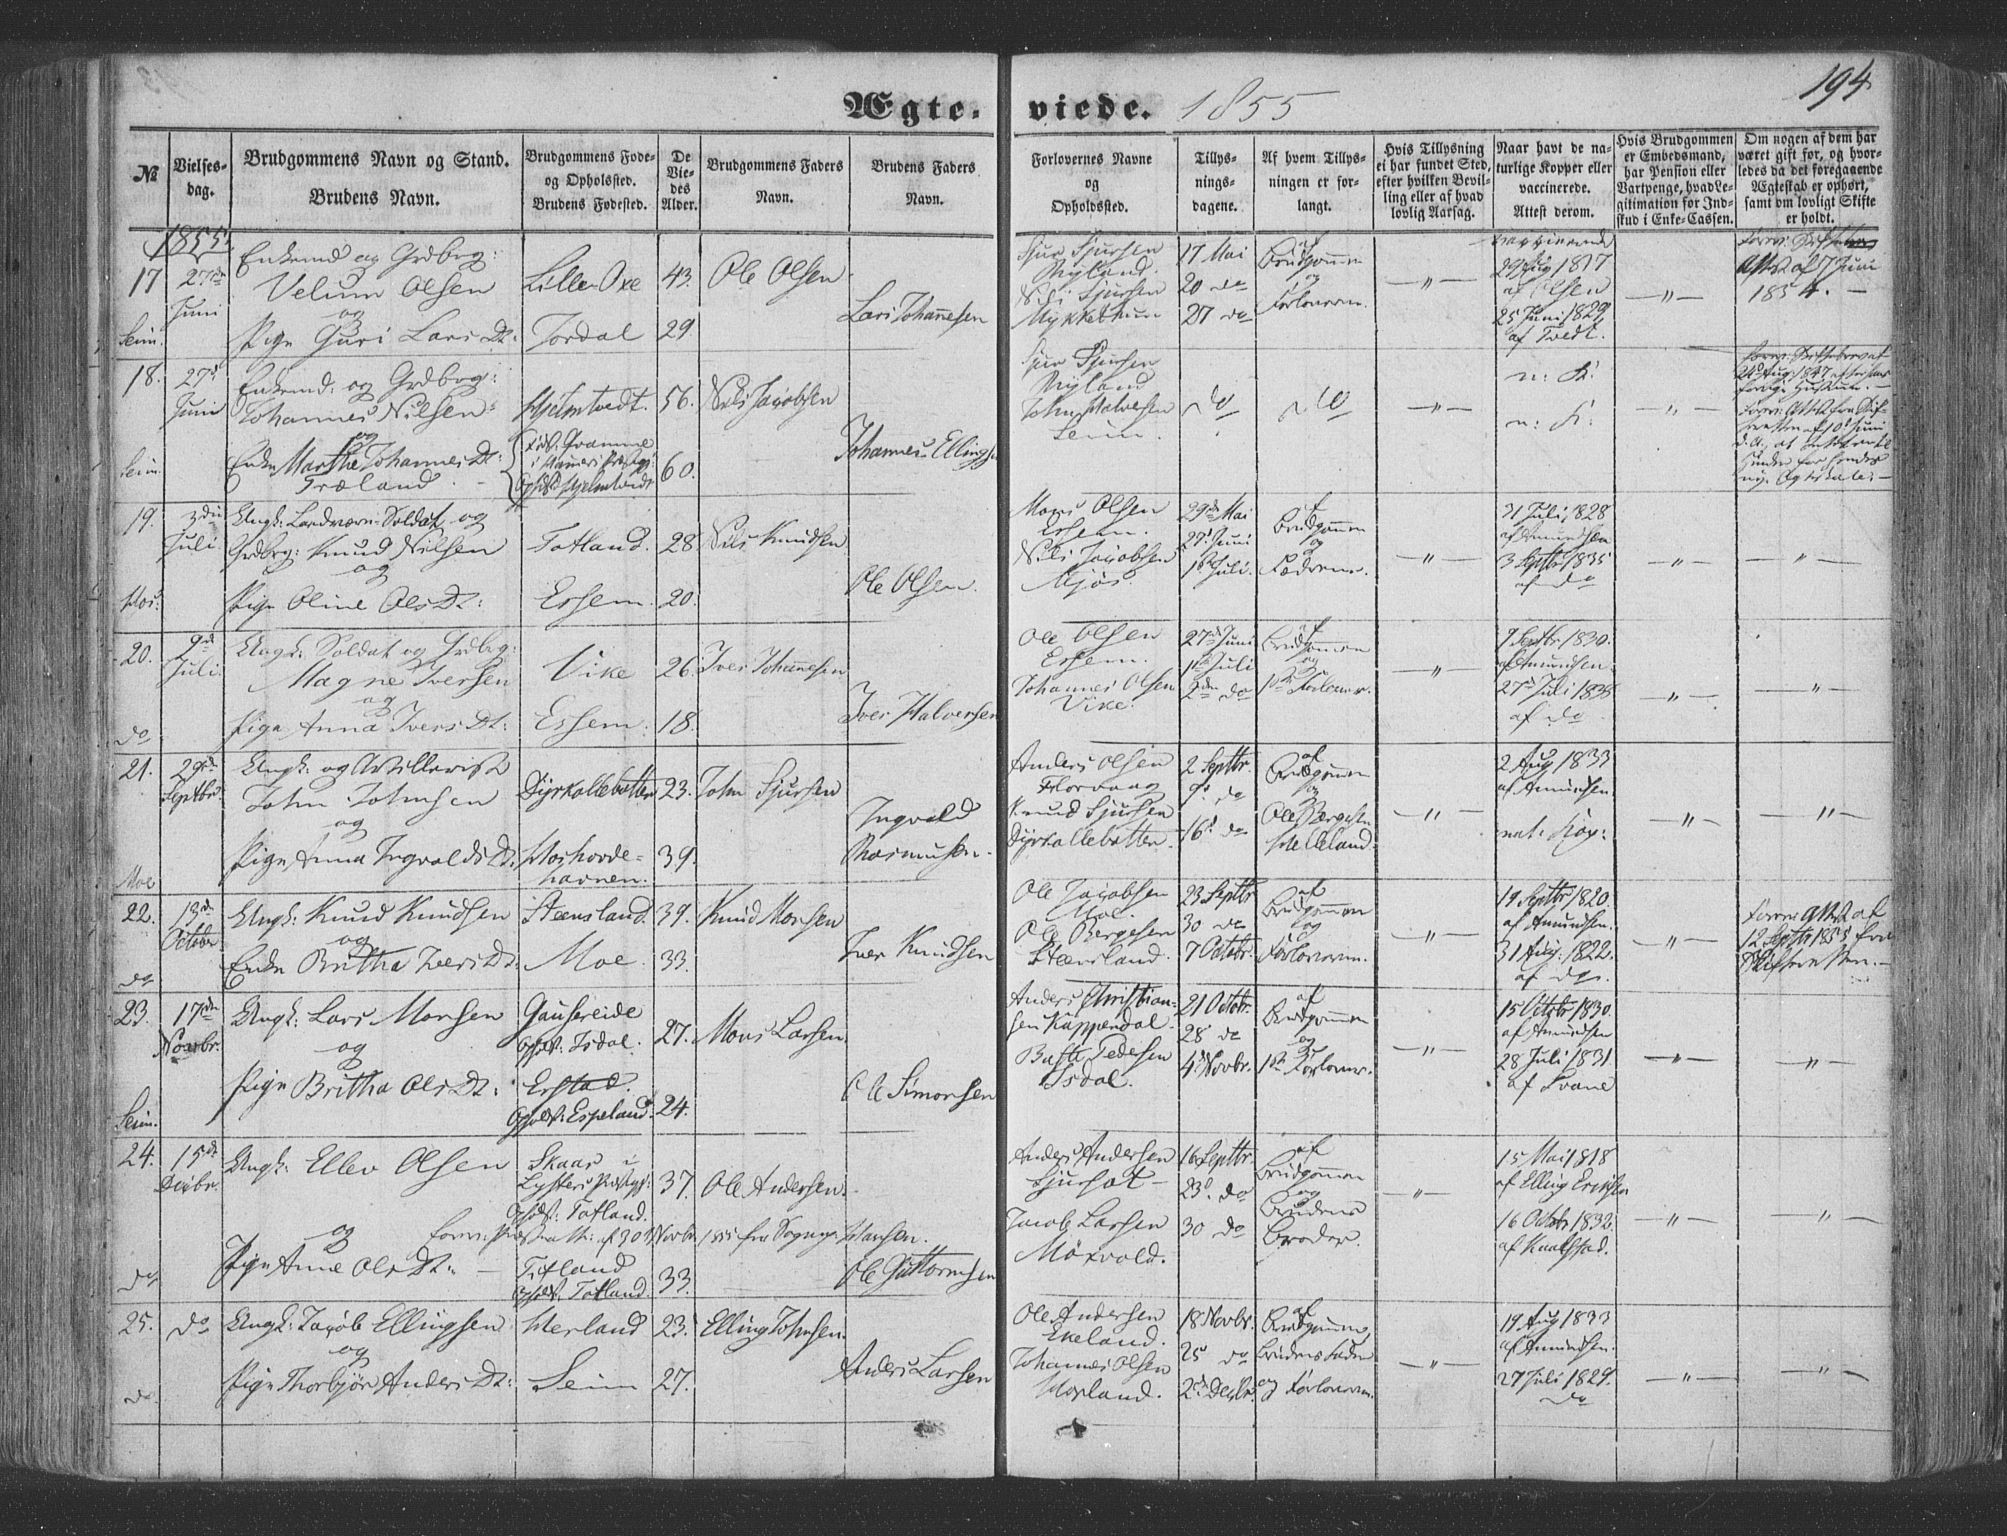 194
Ægte- viede. 1855
№
Vielses-
dag.
Brudgommens Navn og Stand.
Brudens Navn.
Brudgommens Føde-
og Opholdssted.
Brudens Fødested.
De
Vie-
des
Alder.
Brudgommens Faders
Navn.
Brudens Faders
Navn.
Forlovernes Navne
og
Opholdssted.
Tillys-
nings-
dagene.
Af hvem Tillys-
ningen er for-
langt.
Hvis Tillysning
ei har fundet Sted,
efter hvilken Bevil-
ling eller af hvad
lovlig Aarsag.
Naar havt de na-
turlige Kopper eller
vaccinerede.
Attest derom.
Hvis Brudgommen
er Embedsmand,
har Pension eller
Vartpenge, hvad Le-
gitimation for Ind-
skud i Enke-Cassen.
Om nogen af dem har
været gift før, og hvor-
ledes da det foregaaende
Ægteskab er ophørt,
samt om lovligt Skifte
er holdt.
1855
17 27de Juni Seim.
Enkemd og Grdbrg:
Velum Olsen
og
Pige Guri Lars Dt:
Lille-Oxe 43. Ole Olsen
Jordal 29. Lars Johannesen
Sjur Sjursen
Myland.
Nils Sjursen
Mykkeltun
17 Mai
20 do
27 do
af
Brudgommen
og
Forloverne.
vaccinerede
29 Aug 1817
af Olsen
25 Juni 1829
af Tvedt.
1854. —
18. 27d Juni Seim.
Enkemd: og Grdbrg:
Johannes Nilsen
og
Enke Marthe Johannes Dt:
Træland.
Hjelmtvedt. 56. Nils Jacobsen
Ophst. Hjelmtvedt 60. Johannes Ellingsen
Sjur Sjursen
Myland
John Halvesen
Seim.
do do
n: K:
n: K:
19. 3die Juli Hos:
Ungk: Landværn-Soldat og
Grdbrg: Knud Nilsen
og
Pige Oline Ols Dt:
Totland. 28. Nils Knudsen
Essem. 20. Ole Olsen.
Mons Olsen
Essem.
Nils Jacobsen
Mjøs.
29de Mai
27d Juni
1ste Juli.
af
Brudgommen
og
Fædrene.
31 Juli 1828
af Amundsen
3 Septbr 1835
af do
20. 9de Juli do
Ungk: Soldat og Grdbrg:
Magne Iversen
og
Pige Anna Ivers Dt:
Vike 26. Iver Johannesen
Essem. 18. Iver Halversen
Ole Olsen
Essem.
Johannes Olsen
Vike.
27de Juni
1ste Juli
2den do
af
Brudgommen
og
1ste Forlover.
9 Septbr 1830.
af Amundsen.
27d Juli 1838
af do
21. 29de Septbr Moe
Ungk: og Artillerist
John Johnsen
og
Pige Anna Ingvalds Dt:
Dyrkollebotten 23. John Sjursen
Hoshovde-
havnen. 39. Ingvald
Rasmussen.
Anders Olsen
Florvaag
Knud Sjursen
Dyrkollebotten.
2 Septbr.
9d do
16d do
af
Brudgommen
og
Ole Børgesen
Helleland.
2 Aug 1833
af Amundsen.
nat: Kop:
22. 13de October do
Ungk: Knud Knudsen
og
Enke Britha Ivers Dt:
Steensland. 39. Knud Monsen
Moe. 33. Iver Knudsen
Ole Jacobsen
Moe.
Ole Børgesen
Steensland.
23 Septbr
30 do
7 Octobr.
af
Brudgommen
og
Forloverne.
19 Septbr 1820.
af Amundsen.
31 Aug: 1822.
af do.
12 Septbr 1855 fra
23. 17de Novbr. Seim.
Ungk: Lars Monsen
og
Pige Britha Ols Dt:
Gausereide
Ophst. Isdal. 27. Mons Larsen
Erstad.
Opholdst: Espeland. 24. Ole Simonsen
Anders Christian-
sen Kappendal.
Isdal.
21 Octobr.
28 do
4d Novbr.
af
Brudgommen
og
1ste Forlover.
15 Octobr 1830.
af Amundsen
28 Juli 1831
af Svane
24. 15de Decbr. do
Ungk: Ellev Olsen
og
Pige Anne Ols Dt:
Skaar i
Lysters Præstegj:
Opholdst: Totland. 37. Ole Andersen.
Ophst. Totland. 33. Ole Guttormsen
Anders Andersen
Jacob Larsen
Mørvold.
16 Septbr.
23d do
30 do
af
Brudgommen
og
Brudens
Broder.
15 Mai 1818
af Elling Eriksen
16 Octbr 1832.
25. do do
Ungk: Jacob Ellingsen
og
Pige Thorbjør Anders Dt:
Herland 23. Elling Johnsen.
Seim 27. Anders Larsen
Ole Andersen
Eveland.
Johannes Olsen
Hopland.
18 Novbr.
25 do
2d Decbr.
af
Brudgommen,
Brudens Fader
og Forloverne.
19 Aug 1833
af Amundsen.
27 Juli 1829.
do